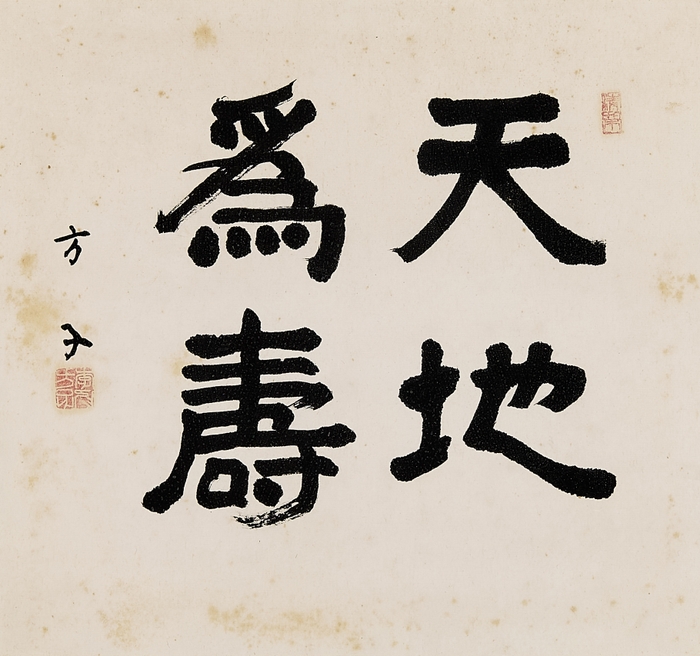 天地
爲壽
方子